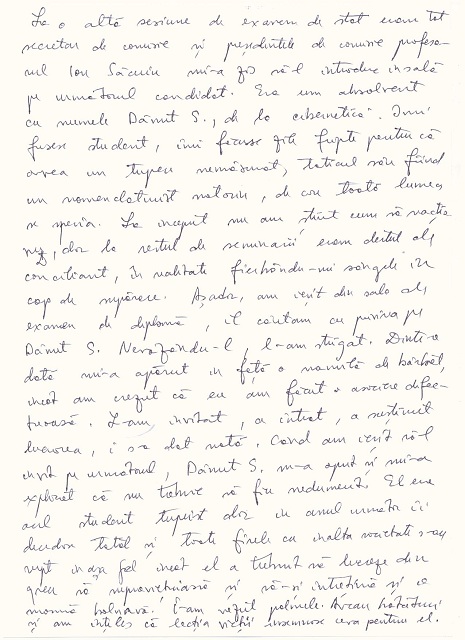 La o altă sesiune de examen de stat eram tot
secretar de comisie și președintele de comisie profeso-
rul Ion Săcuiu mi-a zis să-l introduc în sală
pe următorul candidat. Era un absolvent
cu numele Dănuț S., de la cibernetică. Îmi
fusese student, îmi făcuse zile fripte pentru că
avea un tupeu nemăsurat, taticul său fiind
un nomenclaturist notoriu, de care toată lumea
se speria. La început nu am știut cum să reacțio-
nez, dar la restul de seminarii eram destul de
conciliant, în realitate fierbându-mi sângele în
cap de supărare. Așadar, am ieșit din sala de
examen de diplomă, îl căutam cu privirea pe
Dănuț S. Nevăzându-l, l-am strigat. Dintr-o
dată mi-a apărut în față o mămăiță de bărbat,
încât am crezut că eu am făcut o asociere defec-
tuoasă. L-am invitat, a intrat, a susținut
lucrarea, i s-a dat notă. Când am ieșit să-l
invit pe următorul, Dănuț S. m-a oprit și mi-a
explicat că nu trebuie să fiu nedumerit. El era
acel student tupeist dar în anul următor îi
decedase tatăl și toate firele cu înalta societate s-au
rupt în așa fel încât el a trebuit să lucreze din
greu să supraviețuiască și să-și întrețină și o
mamă bolnavă. I-am văzut palmele. Aveau bătături
și am înțeles că lecția vieții însemnase ceva pentru el.